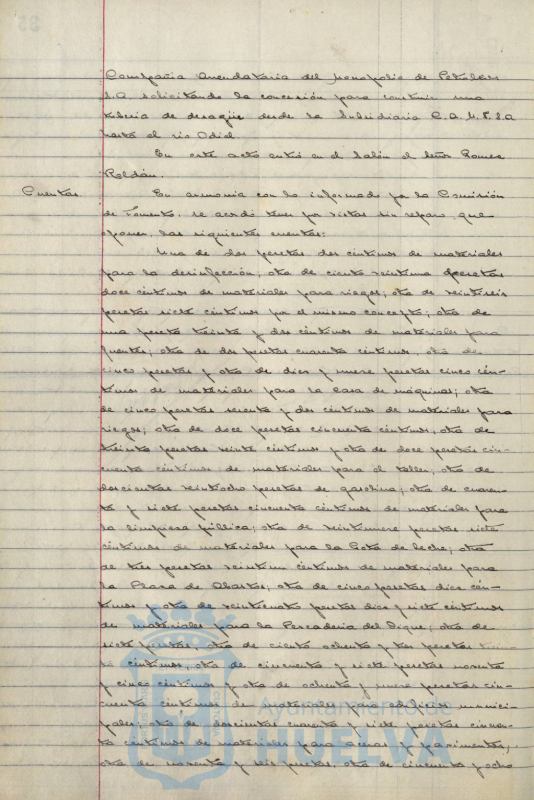 Compañia Arrendataria del Monopolio de Petroleos
S.A. solicitando la concesión para construir una
tuberia de desagüe desde la Subsidiaria C.A.M.P.S.A
hasta el rio Odiel.
En este acto entró en el Salón el Señor Gomez
Roldán.
Cuentas.
En armonia con lo informado por la Comisión
de Fomento, se acordó tener por vistas sin reparo que
oponer, las siguientes cuentas:
Una de dos pesetas dos céntimos de materiales
para la desinfección; otra de ciento veintiuna pesetas
doce céntimos de materiales para riegos; otra de veintiseis
pesetas siete céntimos por el mismo concepto; otra de
una peseta treinta y dos céntimos de materiales para
fuentes; otra de dos pesetas cuarenta céntimos, otra de
cinco pesetas y otra de diez y nueve pesetas cinco cén-
timos de materiales para la Casa de máquinas; otra
de cinco pesetas sesenta y dos céntimos de materiales para
riegos; otra de doce pesetas cincuenta céntimos, otra de
treinta pesetas veinte céntimos y otra de doce pesetas cin-
cuenta céntimos de materiales para el taller; otra de
doscientas veintiocho pesetas de gasolina; otra de cuaren-
ta y siete pesetas cincuenta céntimos de materiales para
la limpieza pública; otra de veintinueve pesetas siete
céntimos de materiales para la Gota de leche; otra
de tres pesetas veintiun céntimos de materiales para
la Plaza de Abastos; otra de cinco pesetas diez cén-
timos y otra de veinticuatro pesetas diez y siete céntimos
de materiales para la Pescaderia del Dique; otra de
siete pesetas, otra de ciento ochenta y tres pesetas trein-
ta céntimos, otra de cincuenta y siete pesetas noventa
y cinco céntimos y otra de ochenta y nueve pesetas cin-
cuenta céntimos de materiales para edificios munici-
pales; otra de doscientas cuarenta y siete pesetas cincuen-
ta céntimos de materiales para aceras y pavimentos;
otra de noventa y seis pesetas, otra de cincuenta y ocho
Ayuntamiento de
HUELVA